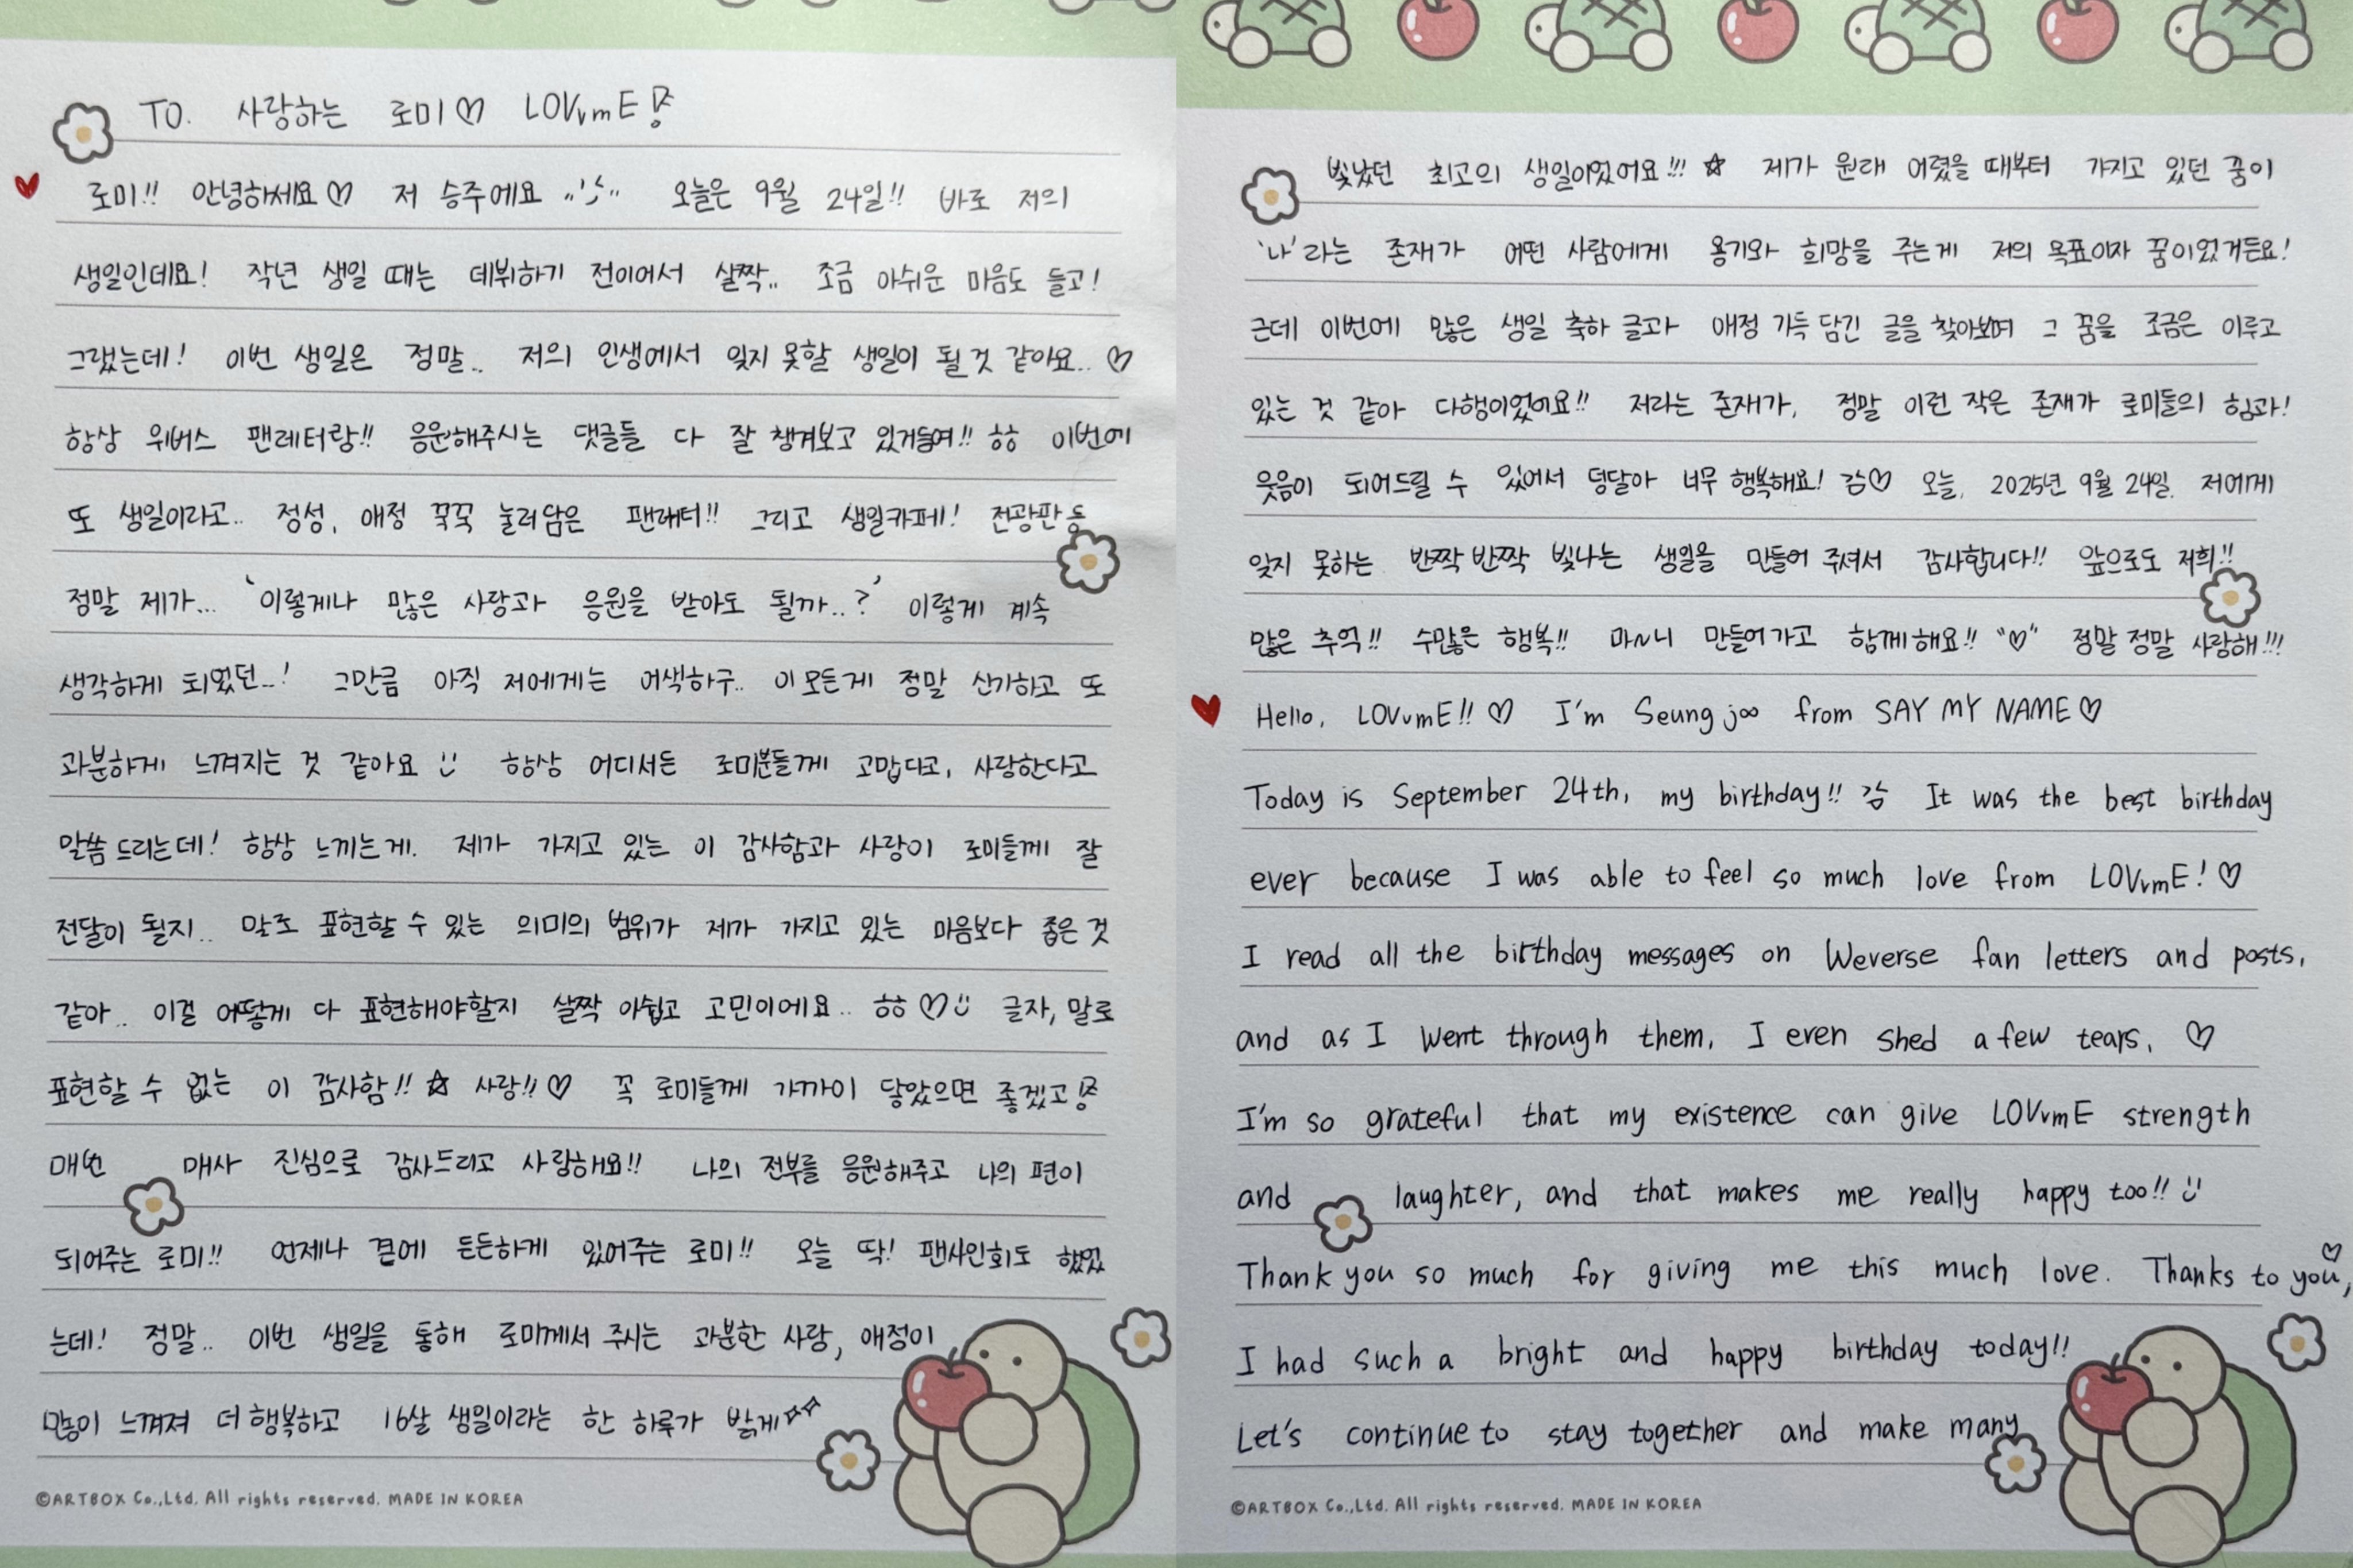 TO. 사랑하는 로미♡ LOVvmE!
로미!! 안녕하세요♡ 저 승주에요 오늘은 9월 24일!! 바로 저의
생일인데요! 작년 생일 때는 데뷔하기 전이어서 살짝.. 조금 아쉬운 마음도 들고!
그랬는데! 이번 생일은 정말.. 저의 인생에서 잊지 못할 생일이 될 것 같아요..♡
항상 위버스 팬레터랑!! 응원해주시는 댓글들 다 잘 챙겨보고 있거든여!! ㅎㅎ 이번에
또 생일이라고.. 정성, 애정 꾹꾹 눌러담은 팬레터!! 그리고 생일카페! 전광판 등
정말 제가... '이렇게나 많은 사랑과 응원을 받아도 될까..?' 이렇게 계속
생각하게 되었던...! 그만큼 아직 저에게는 어색하구.. 이 모든게 정말 신기하고 또
과분하게 느껴지는 것 같아요 항상 어디서든 로미분들께 고맙다고, 사랑한다고
말씀드리는데! 항상 느끼는게. 제가 가지고 있는 이 감사함과 사랑이 로미들께 잘
전달이 될지.. 말로 표현할 수 있는 의미의 범위가 제가 가지고 있는 마음보다 좁은 것
같아.. 이걸 어떻게 다 표현해야할지 살짝 아쉽고 고민이에요.. ㅎㅎ♡ 글자, 말로
표현할 수 없는 이 감사함!! ☆ 사랑!!♡ 꼭 로미들께 가까이 닿았으면 좋겠고!
매번 매사 진심으로 감사드리고 사랑해요!! 나의 전부를 응원해주고 나의 편이
되어주는 로미!! 언제나 곁에 든든하게 있어주는 로미!! 오늘 딱! 팬사인회도 했었
는데! 정말.. 이번 생일을 통해 로미께서 주시는 과분한 사랑, 애정이
많이 느껴져 더 행복하고 16살 생일이라는 한 하루가 밝게
©ARTBOX Co.,Ltd. All rights reserved. MADE IN KOREA
빛났던 최고의 생일이었어요!!! ☆ 제가 원래 어렸을 때부터 가지고 있던 꿈이
'나'라는 존재가 어떤 사람에게 용기와 희망을 주는게 저의 목표이자 꿈이었거든요!
근데 이번에 많은 생일 축하 글과 애정 가득 담긴 글을 찾아보며 그 꿈을 조금은 이루고
있는 것 같아 다행이었어요!! 저라는 존재가, 정말 이런 작은 존재가 로미들의 힘과!
웃음이 되어드릴 수 있어서 덩달아 너무 행복해요! 감♡ 오늘, 2025년 9월 24일. 저에게
잊지 못하는 반짝반짝 빛나는 생일을 만들어 주셔서 감사합니다!! 앞으로도 저희!!
많은 추억!! 수많은 행복!! 마~니 만들어가고 함께해요!! "♡" 정말정말 사랑해!!!
Hello, LOVvmE!! ♡ I'm Seungjoo from SAY MY NAME♡
Today is September 24th, my birthday!! 감 It was the best birthday
ever because I was able to feel so much love from LOVvmE!♡
I read all the birthday messages on Weverse fan letters and posts,
and as I went through them, I even shed a few tears. ♡
I'm so grateful that my existence can give LOVvmE strength
and laughter, and that makes me really happy too!!
Thank you so much for giving me this much love. Thanks to you,♡
I had such a bright and happy birthday today!!
Let's continue to stay together and make many
©ARTBOX Co.,Ltd. All rights reserved. MADE IN KOREA